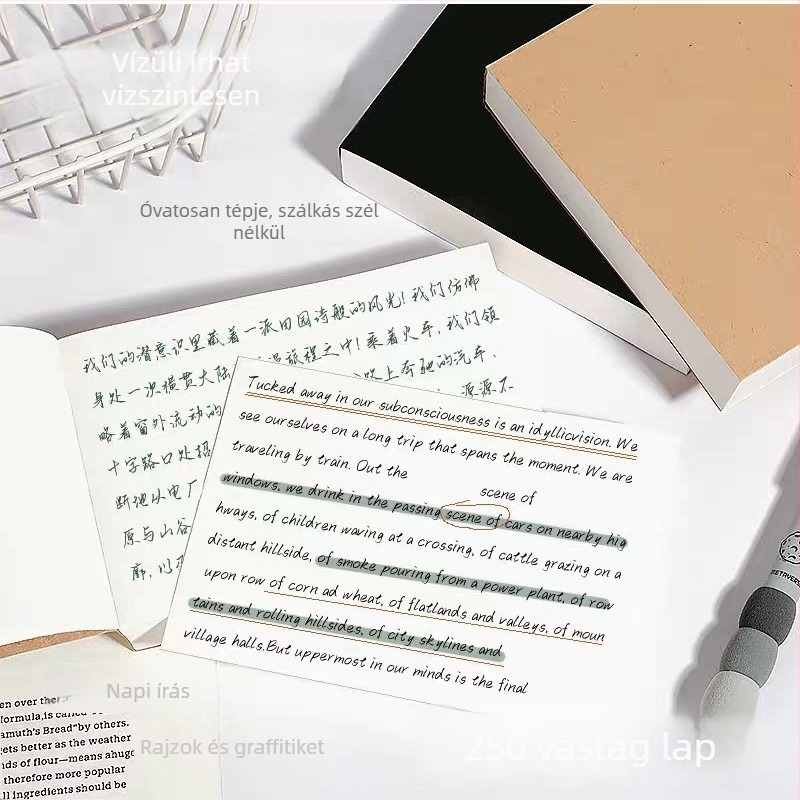 Vízüli írhat
vízszintesen
Óvatosan tépje, szálkás szél
nélkül
我们的潜意识里藏着一派田园诗般的风光!我们仿佛
身处一次横贯大陆
旅程之中!乘着火车,我们领
略着窗外流动的
路上奔驰的汽车、
十字路口处招
源源不
断地从电厂
原与山谷
廓,以及
Tucked away in our subconsciousness is an idyllicvision. We
see ourselves on a long trip that spans the moment. We are
traveling by train. Out the
scene of
windows, we drink in the passing scene of cars on nearby hig
hways, of children waving at a crossing, of cattle grazing on a
distant hillside, of smoke pouring from a power plant, of row
upon row of corn ad wheat, of flatlands and valleys, of moun
tains and rolling hillsides, of city skylines and
village halls.But uppermost in our minds is the final
Napi írás
Rajzok és graffitiket
250 vastag lap
en over the
formula,is called
amuth's Bread"by others.
gets better as the weather
nds of flour—means ahuge
therefore more popular
ll ingredients should be